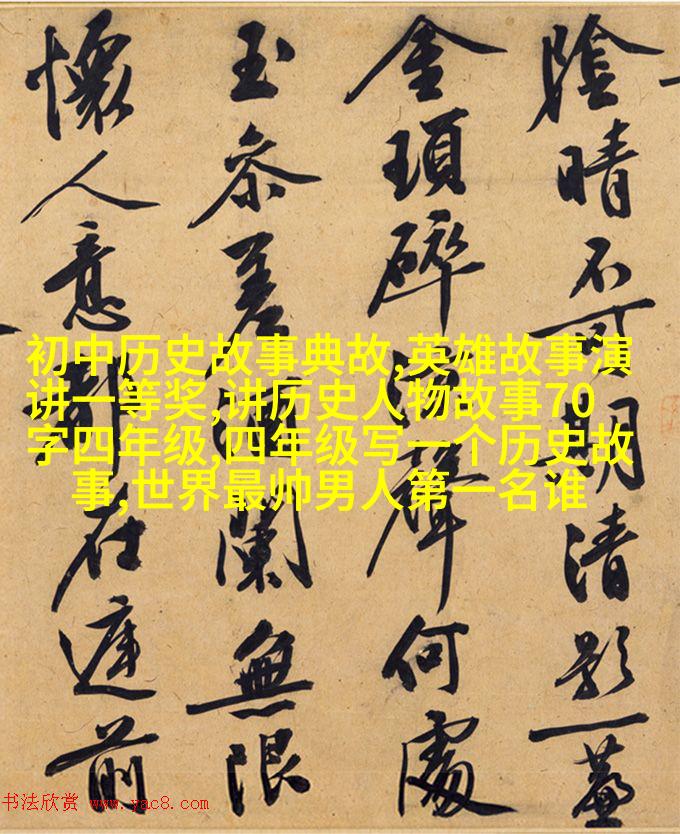 陰晴不可期清影一
金瑣碎聲何處
玉參差闌無限
懷人意在前
初中历史故事典故,英雄故事演
讲一等奖,讲历史人物故事70
字四年级,四年级写一个历史故
事,世界最帅男人第一名谁
书法欣赏 www.yac8.com